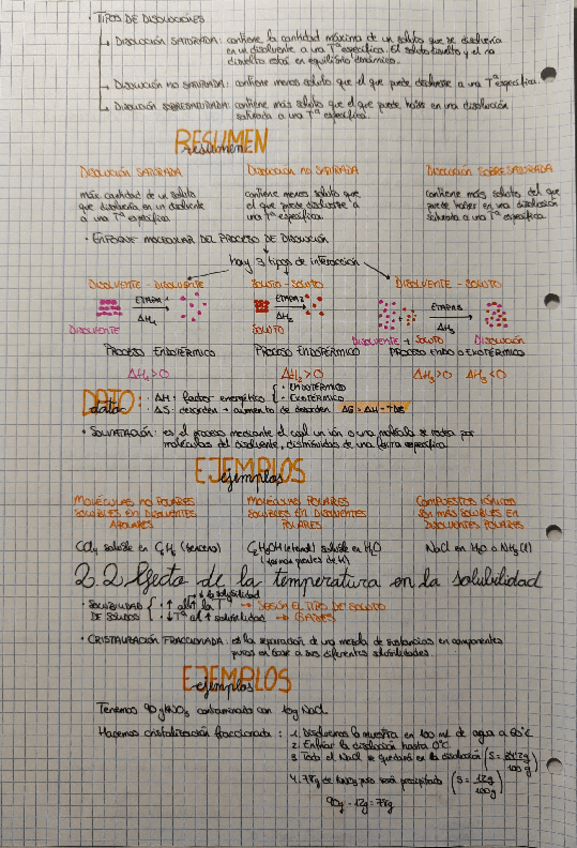 · TIPOS DE DISOLUCIONES
→ DISOLUCIÓN SATURADA: contiene la cantidad máxima de un soluto que se disolvería
en un disolvente a una Tª específica. El soluto disuelto y el no
disuelto están en equilibrio dinámico.
→ DISOLUCIÓN NO SATURADA: contiene menos soluto que el que puede disolverse a una Tª específica.
→ DISOLUCIÓN SOBRESATURADA: contiene más soluto que el que puede haber en una disolución
saturada a una Tª específica.
RESUMEN
resumen
DISOLUCIÓN SATURADA DISOLUCIÓN NO SATURADA DISOLUCIÓN SOBRESATURADA
máx. cantidad de un soluto contiene menos soluto que contiene más soluto del que
que disolvería en un disolvente el que puede disolverse a puede haber en una disolución
a una Tª específica una Tª específica. saturada a una Tª específica.
· ENFOQUE MOLECULAR DEL PROCESO DE DISOLUCIÓN
hay 3 tipos de interacción
DISOLVENTE - DISOLVENTE SOLUTO - SOLUTO DISOLVENTE - SOLUTO
ETAPA 1 ETAPA 2 ETAPA 3
ΔH₁ ΔH₂ ΔH₃
DISOLVENTE SOLUTO DISOLVENTE + SOLUTO DISOLUCIÓN
PROCESO ENDOTÉRMICO PROCESO ENDOTÉRMICO PROCESO ENDO O EXOTÉRMICO
ΔH₁>0 ΔH₂>0 ΔH₃>0 ΔH₃<0
DATO: · ΔH: factor energético { · ENDOTÉRMICO
dato · EXOTÉRMICO
· ΔS: desorden → aumento de desorden ΔG = ΔH - TΔS
· SOLVATACIÓN: es el proceso mediante el cual un ión o una molécula se rodea por
moléculas del disolvente, distribuidas de una forma específica.
EJEMPLOS
ejemplos
MOLÉCULAS NO POLARES MOLÉCULAS POLARES COMPUESTOS IÓNICOS
SOLUBLES EN DISOLVENTES SOLUBLES EN DISOLVENTES SON MÁS SOLUBLES EN
APOLARES POLARES DISOLVENTES POLARES
CCl₄ soluble en C₆H₆ (benceno) C₂H₅OH (etanol) soluble en H₂O NaCl en H₂O o NH₃(l)
(forman puentes de H)
2.2 Efecto de la temperatura en la solubilidad
↓ la solubilidad
· SOLUBILIDAD { · ↑ al ↑ la T → SEGÚN EL TIPO DE SOLUTO
DE SÓLIDOS · ↓ Tª al ↑ solubilidad → GASES
· CRISTALIZACIÓN FRACCIONADA: es la separación de una mezcla de sustancias en componentes
puros en base a sus diferentes solubilidades.
EJEMPLOS
ejemplos
Tenemos 90 g KNO₃ contaminado con 10g NaCl
Hacemos cristalización fraccionada: 1. Disolvemos la muestra en 100 ml de agua a 60°C
2. Enfriar la disolución hasta 0°C
3. Todo el NaCl se quedará en la disolución (S = 34'2g / 100 g)
4. 78g de KNO₃ puro será precipitado (S = 12g / 100g)
90g - 12g = 78g